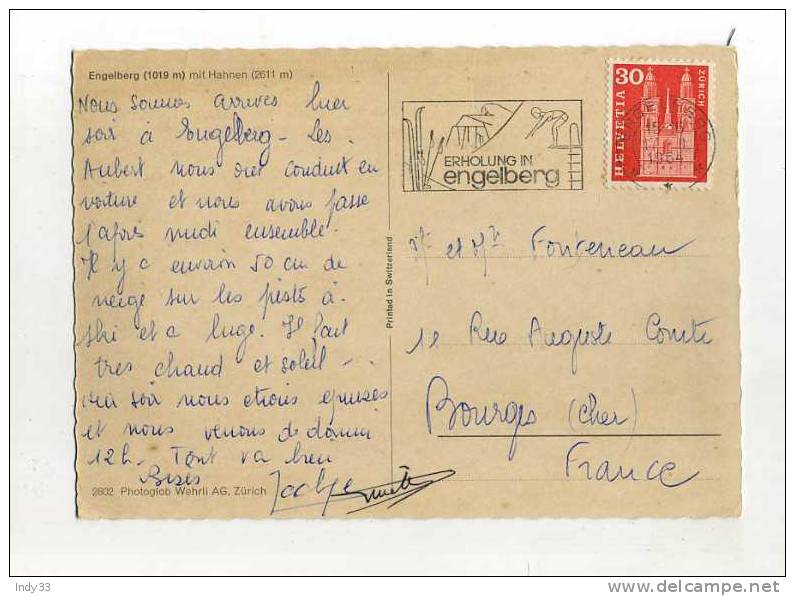 Engelberg (1019 m) mit Hahnen (2611 m)
Nous sommes arrivés hier
soir à Engelberg - Les
Aubert nous ont conduit en
voiture et nous avons passé
l'après midi ensemble.
Il y a environ 50 cm de
neige sur les pistes à
ski et a luge. Il fait
très chaud et soleil -
soir nous étions épuisés
et nous venons de dormir
12h. Tout va bien
Bises
2802 Photoglob Wehrli AG, Zürich
Printed in Switzerland
ERHOLUNG IN
engelberg
30
HELVETIA
ZÜRICH
1964
et Fonteneau
Rue Auguste Comte
Bourges (Cher)
France
Indy33
http://www.delcampe.net